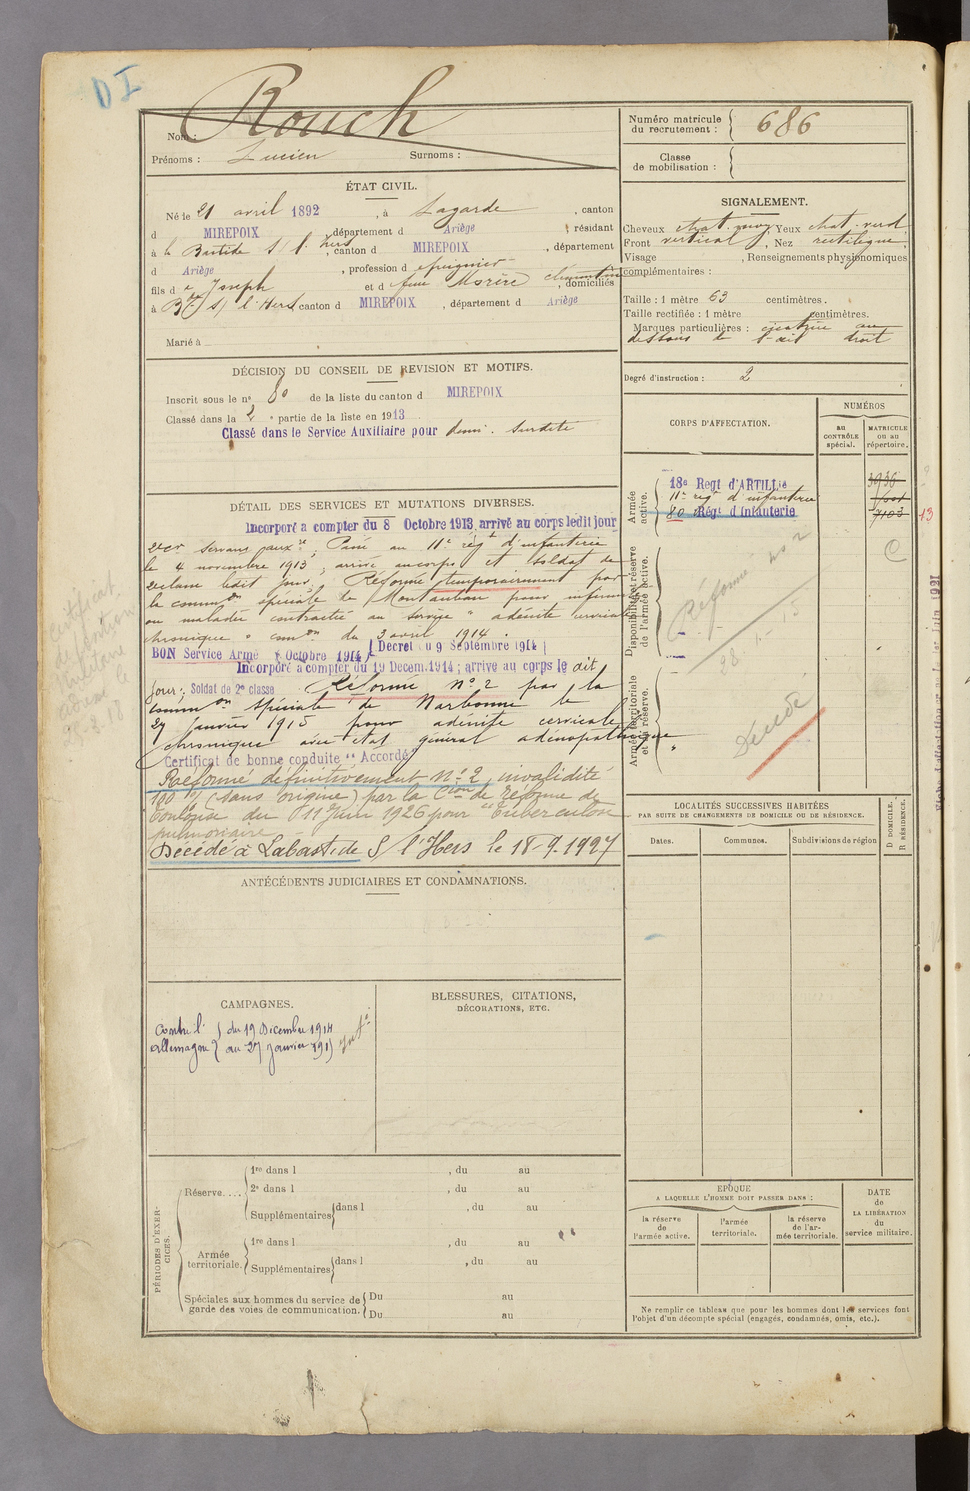 D I
Rouch
Nom :
Prénoms : Lucien Surnoms :
Numéro matricule
du recrutement : 686
Classe
de mobilisation :
ÉTAT CIVIL.
Né le 21 avril 1892, à Lagarde, canton
d MIREPOIX, département d Ariège, résidant
à la Bastide S/ l'Hers, canton d MIREPOIX, département
d Ariège, profession d
fils d e Joseph et d feue Morère Clémentine, domiciliés
à Bde S/ l'Hers canton d MIREPOIX, département d Ariège
Marié à
SIGNALEMENT.
Cheveux chat. Yeux chat. verd
Front vertical, Nez rectiligne,
Visage , Renseignements physionomiques
complémentaires :
Taille : 1 mètre 63 centimètres.
Taille rectifiée : 1 mètre centimètres.
Marques particulières : cicatrice au
dessous de l'œil droit
Degré d'instruction : 2
DÉCISION DU CONSEIL DE REVISION ET MOTIFS.
Inscrit sous le n° 80 de la liste du canton d MIREPOIX
Classé dans la 2 e partie de la liste en 1913
Classé dans le Service Auxiliaire pour demi-surdité
DÉTAIL DES SERVICES ET MUTATIONS DIVERSES.
Incorporé à compter du 8 Octobre 1913, arrivé au corps ledit jour
2e cr servant auxre, Passé au 11e régt d'infanterie
le 4 novembre 1913, arrivé au corps et soldat de
2e classe ledit jour, Réformé temporairement par
la common spéciale de Montauban pour infirmités
ou maladies contractée au service "adénite cervicale
chronique" common du 3 avril 1914.
BON Service Armé Octobre 1914 { Décret du 9 Septembre 1914 }
Incorporé à compter du 19 Décem. 1914 ; arrivé au corps le dit
jour; Soldat de 2e classe Réformé N° 2 par la
common spéciale de Narbonne le
27 janvier 1915 pour adénite cervicale
chronique avec état général adénopathique"
Certificat de bonne conduite "Accordé"
Réformé définitivement n° 2 invalidité
100 % (sans origine) par la Cion de réforme de
Toulouse du 11 Juin 1926 pour "Tuberculose
pulmonaire
Décédé à Labast. de S/ l'Hers le 18-9-1927
CORPS D'AFFECTATION.
NUMÉROS
au
CONTRÔLE
spécial.
MATRICULE
ou au
répertoire.
Armée
active.
18e Regt d'ARTILLie 3936
11e régt d'infanterie
80 Régt d'Infanterie 7103 13
Disponibilité et réserve
de l'armée active.
Réformé no 2
28-1-15
C
Armée territoriale
et sa réserve.
Décédé
LOCALITÉS SUCCESSIVES HABITÉES
PAR SUITE DE CHANGEMENTS DE DOMICILE OU DE RÉSIDENCE.
Dates. Communes. Subdivisions de région
D DOMICILE.
R RÉSIDENCE.
ANTÉCÉDENTS JUDICIAIRES ET CONDAMNATIONS.
CAMPAGNES.
Contre l' du 19 Décembre 1914
Allemagne au 27 Janvier 1915
BLESSURES, CITATIONS,
DÉCORATIONS, ETC.
PÉRIODES D'EXERCICES.
Réserve....
1re dans l , du au
2e dans l , du au
Supplémentaires dans l , du au
Armée
territoriale.
1re dans l , du au
Supplémentaires dans l , du au
Spéciales aux hommes du service de
garde des voies de communication.
Du au
Du au
EPOQUE
A LAQUELLE L'HOMME DOIT PASSER DANS :
la réserve
de
l'armée active.
l'armée
territoriale.
la réserve
de l'ar-
mée territoriale.
DATE
de
LA LIBÉRATION
du
service militaire.
Ne remplir ce tableau que pour les hommes dont les services font
l'objet d'un décompte spécial (engagés, condamnés, omis, etc.).